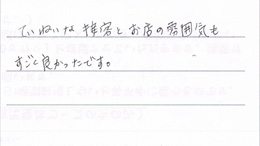 ていねいな接客とお店の雰囲気も
すごく良かったです。